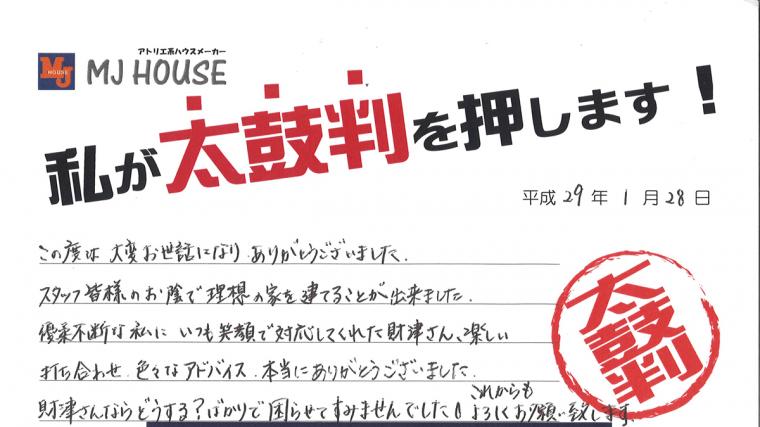 アトリエ系ハウスメーカー
MJ HOUSE
MJ HOUSE
私が太鼓判を押します!
平成29年1月28日
この度は大変お世話になり ありがとうございました.
スタッフ皆様のお陰で理想の家を建てることが出来ました.
優柔不断な私に いつも笑顔で対応してくれた財津さん、楽しい
打ち合わせ.色々なアドバイス.本当にありがとうございました.
これからも
財津さんならどうする?ばかりで困らせてすみませんでした!よろしくお願い致します.
太鼓判